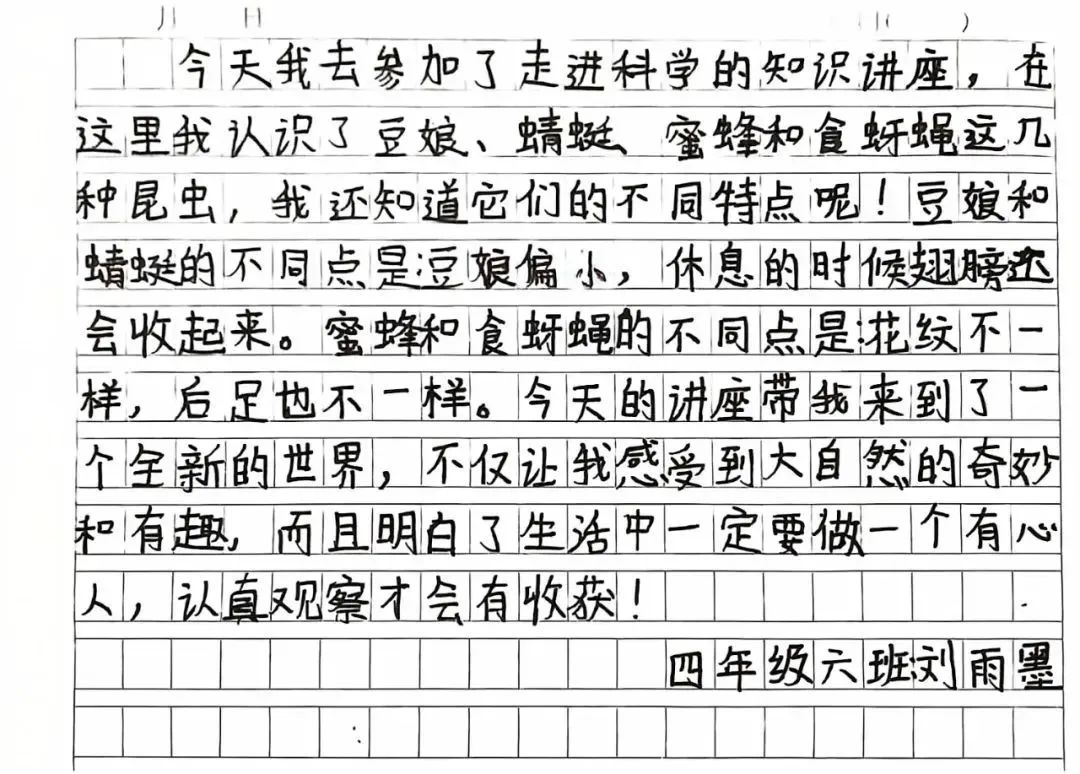 月 日
今天我去参加了走进科学的知识讲座，在
这里我认识了豆娘、蜻蜓、蜜蜂和食蚜蝇这几
种昆虫，我还知道它们的不同特点呢！豆娘和
蜻蜓的不同点是：豆娘偏小，休息的时候翅膀还
会收起来。蜜蜂和食蚜蝇的不同点是：花纹不一
样，后足也不一样。今天的讲座带我来到了一
个全新的世界，不仅让我感受到大自然的奇妙
和有趣，而且明白了生活中一定要做一个有心
人，认真观察才会有收获！
四年级六班：刘雨墨